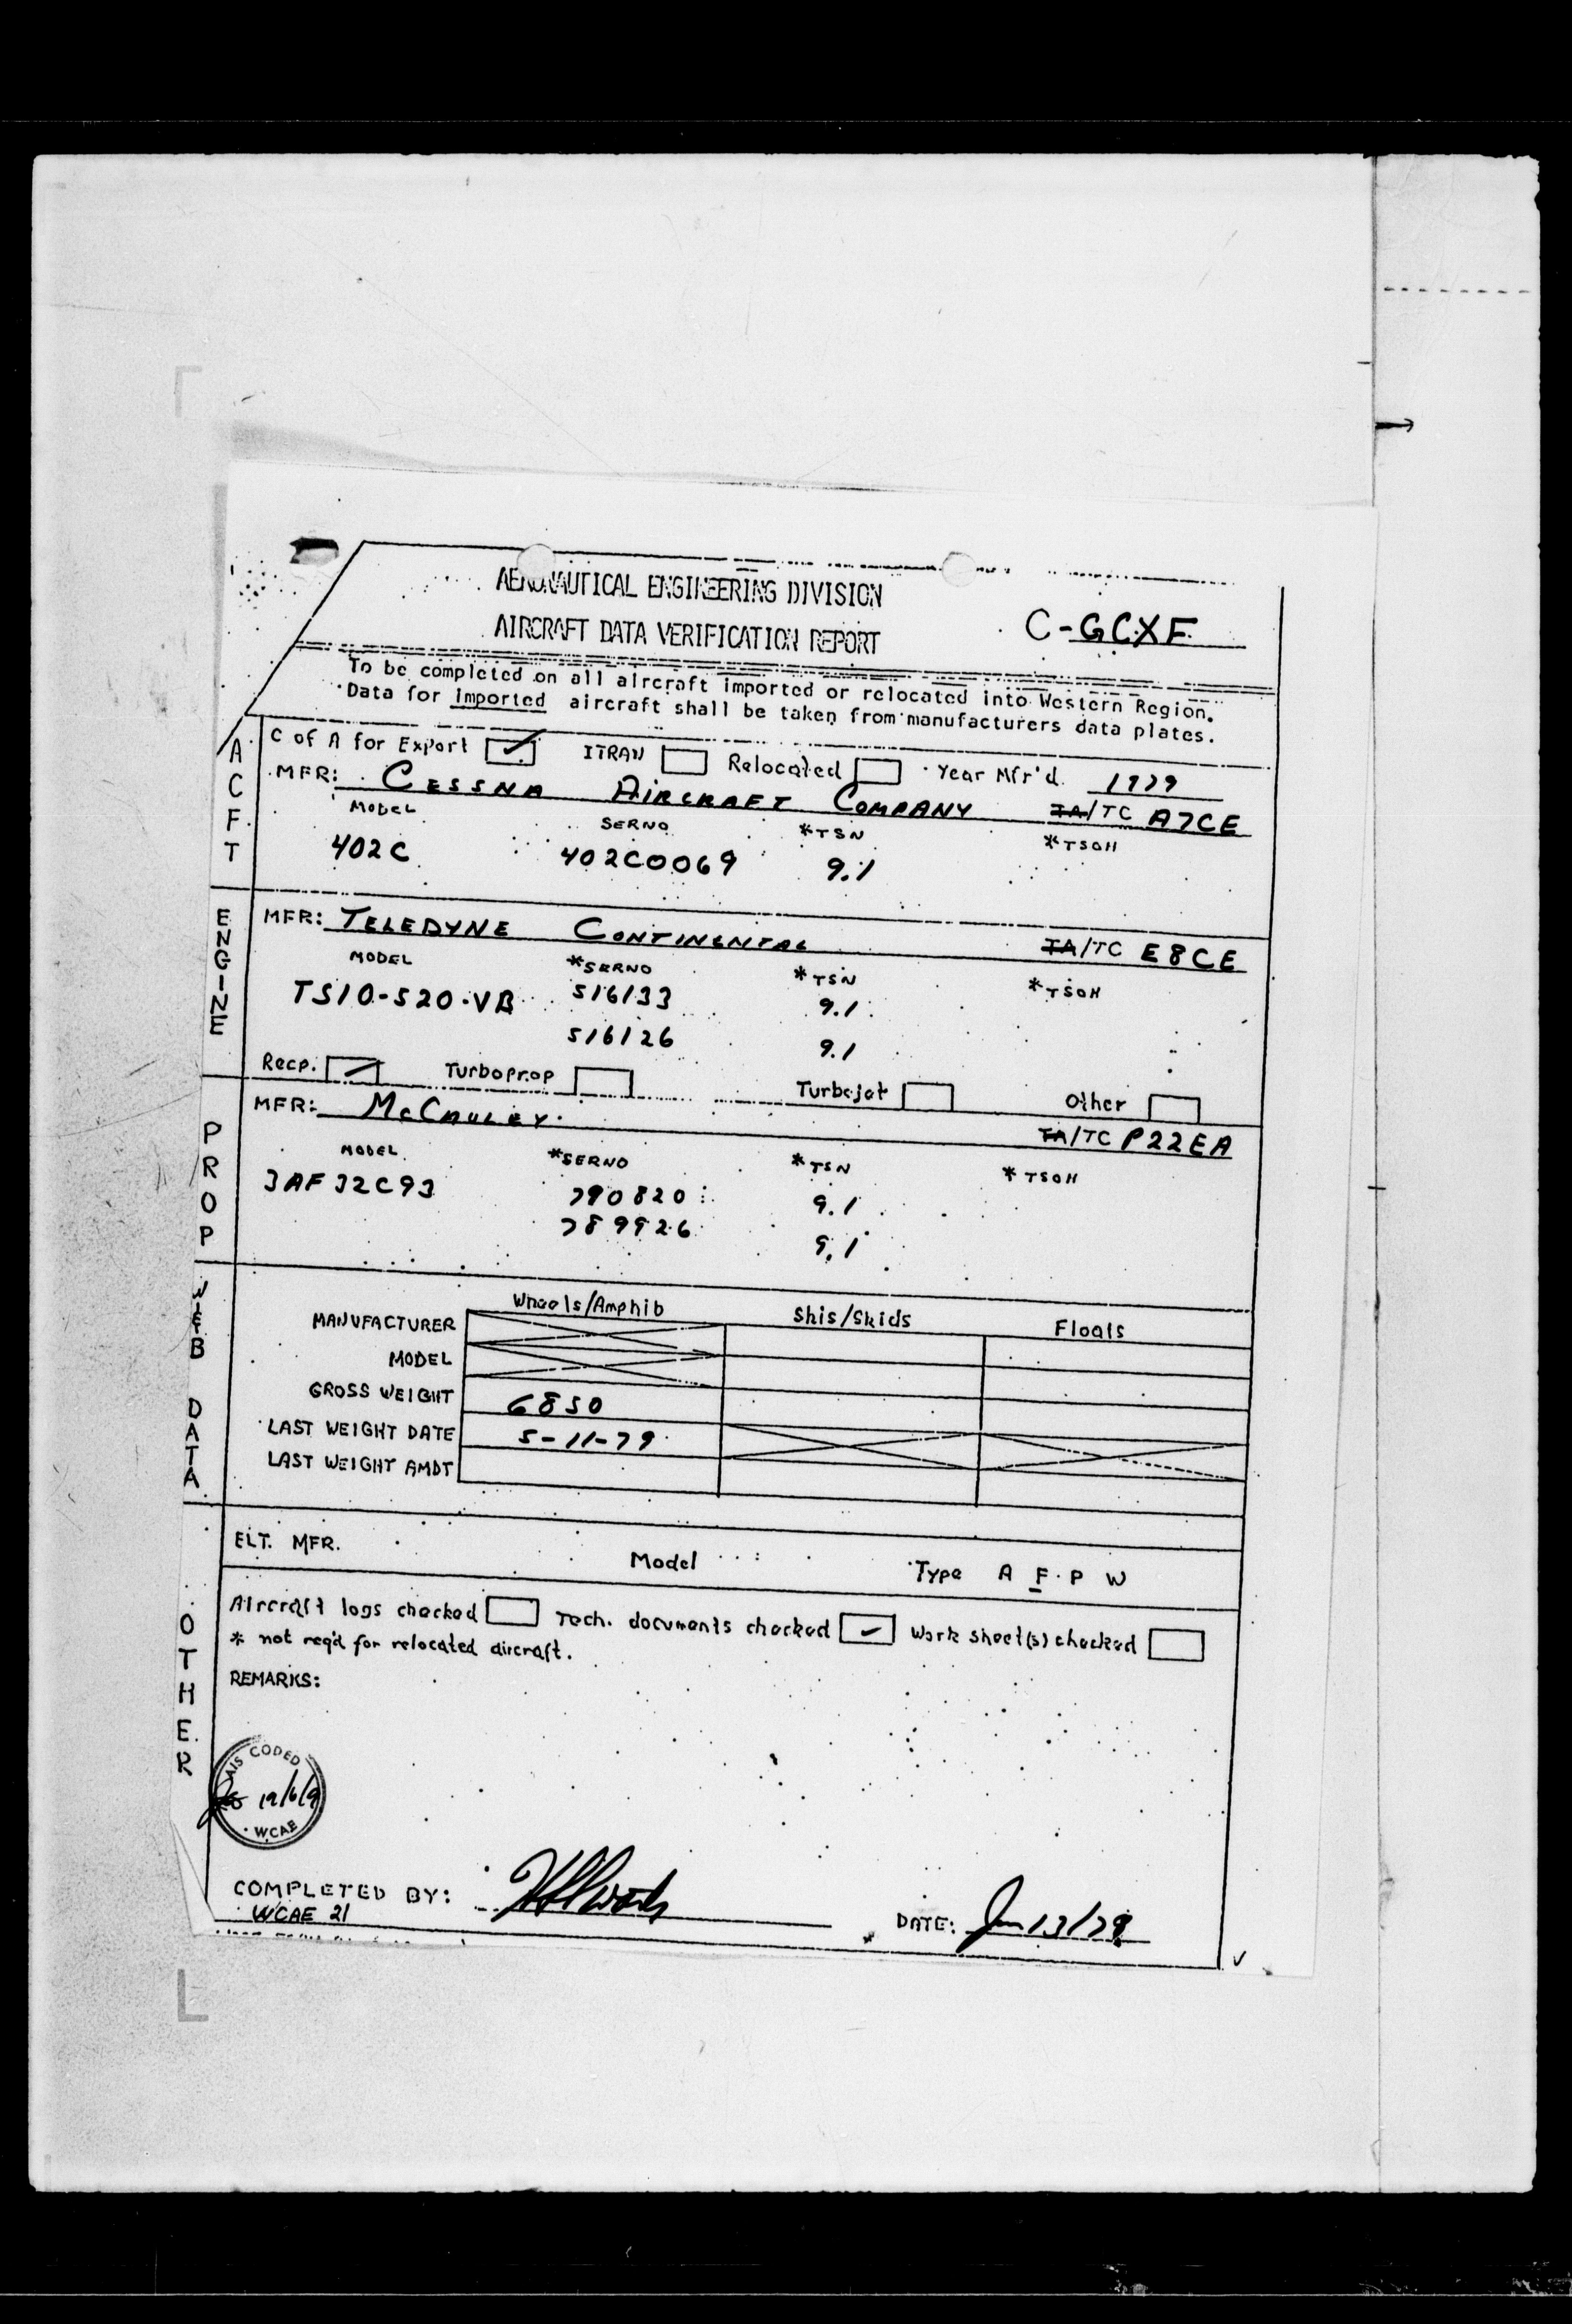 AERONAUTICAL ENGINEERING DIVISION
AIRCRAFT DATA VERIFICATION REPORT
C-GCXF
To be completed on all aircraft imported or relocated into Western Region.
Data for imported aircraft shall be taken from manufacturers data plates.
ACFT
C of A for Export ITRAN Relocated Year Mfr'd. 1979
MFR: CESSNA AIRCRAFT COMPANY TA/TC A7CE
MODEL SERNO *TSN *TSOH
402C 402C0069 9.1
ENGINE
MFR: TELEDYNE CONTINENTAL TA/TC E8CE
MODEL *SERNO *TSN *TSOH
TSIO-520-VB 516133 9.1
516126 9.1
Recp. Turboprop Turbojet Other
PROP
MFR: McCAULEY TA/TC P22EA
MODEL *SERNO *TSN *TSOH
3AF32C93 790820 9.1
789926 9.1
W&B DATA
Wheels/Amphib Skis/Skids Floats
MANUFACTURER
MODEL
GROSS WEIGHT 6850
LAST WEIGHT DATE 5-11-79
LAST WEIGHT AMDT
OTHER
ELT. MFR. Model Type A F P W
Aircraft logs checked Tech. documents checked Work sheet(s) checked
* not req'd for relocated aircraft.
REMARKS:
AIS CODED
WCAE
COMPLETED BY:
WCAE 21
DATE: Jun 13/79